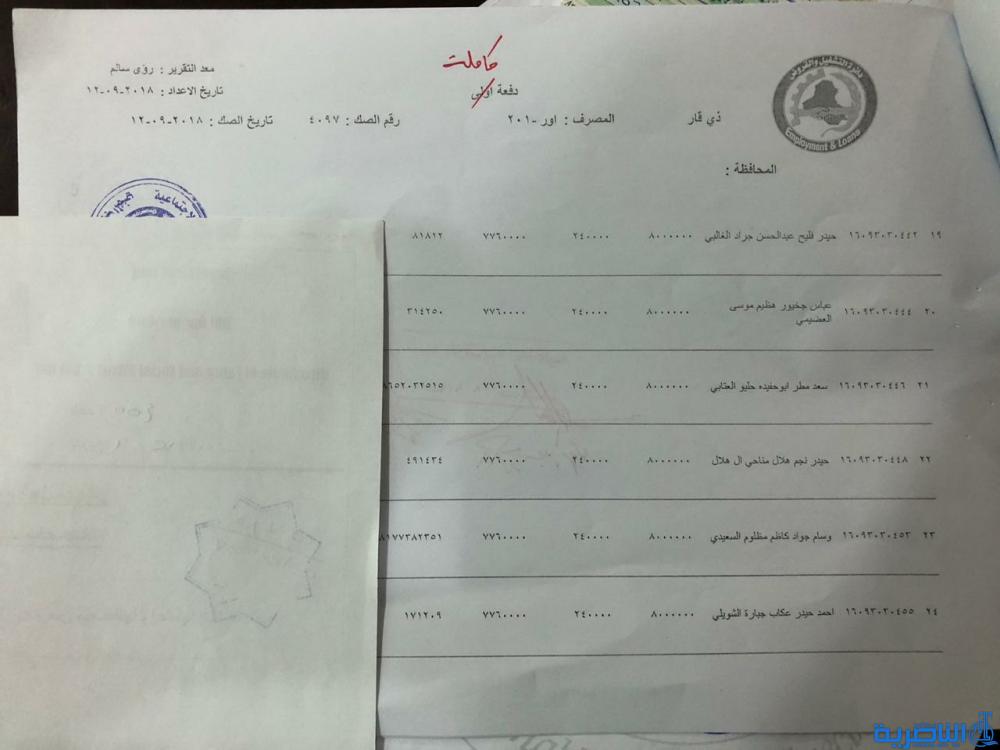 كاملت
دفعة اولى
معد التقرير : رؤى سالم
تاريخ الاعداد : ١٢-٠٩-٢٠١٨
دائرة التشغيل والقروض
Employment & Loans
ذي قار المصرف : اور -٢٠١ رقم الصك : ٤٠٩٧ تاريخ الصك : ١٢-٠٩-٢٠١٨
المحافظة :
١٩ ١٦٠٩٣٠٣٠٤٤٢ حيدر فليح عبدالحسن جراد الغالبي ٨٠٠٠٠٠٠ ٢٤٠٠٠٠ ٧٧٦٠٠٠٠ ٨١٨٢٢
٢٠ ١٦٠٩٣٠٣٠٤٤٤ عباس جخيور هظيم موسى العضيمي ٨٠٠٠٠٠٠ ٢٤٠٠٠٠ ٧٧٦٠٠٠٠ ٣١٤٢٥٠
٢١ ١٦٠٩٣٠٣٠٤٤٦ سعد مطر ابوحفيده حليو العتابي ٨٠٠٠٠٠٠ ٢٤٠٠٠٠ ٧٧٦٠٠٠٠ 8652032515
٢٢ ١٦٠٩٣٠٣٠٤٤٨ حيدر نجم هلال مناحي ال هلال ٨٠٠٠٠٠٠ ٢٤٠٠٠٠ ٧٧٦٠٠٠٠ ٤٩١٤٣٤
٢٣ ١٦٠٩٣٠٣٠٤٥٣ وسام جواد كاظم مظلوم السعيدي ٨٠٠٠٠٠٠ ٢٤٠٠٠٠ ٧٧٦٠٠٠٠ 8177382351
٢٤ ١٦٠٩٣٠٣٠٤٥٥ احمد حيدر عكاب جبارة الشويلي ٨٠٠٠٠٠٠ ٢٤٠٠٠٠ ٧٧٦٠٠٠٠ ١٧١٢٠٩
الناصرية